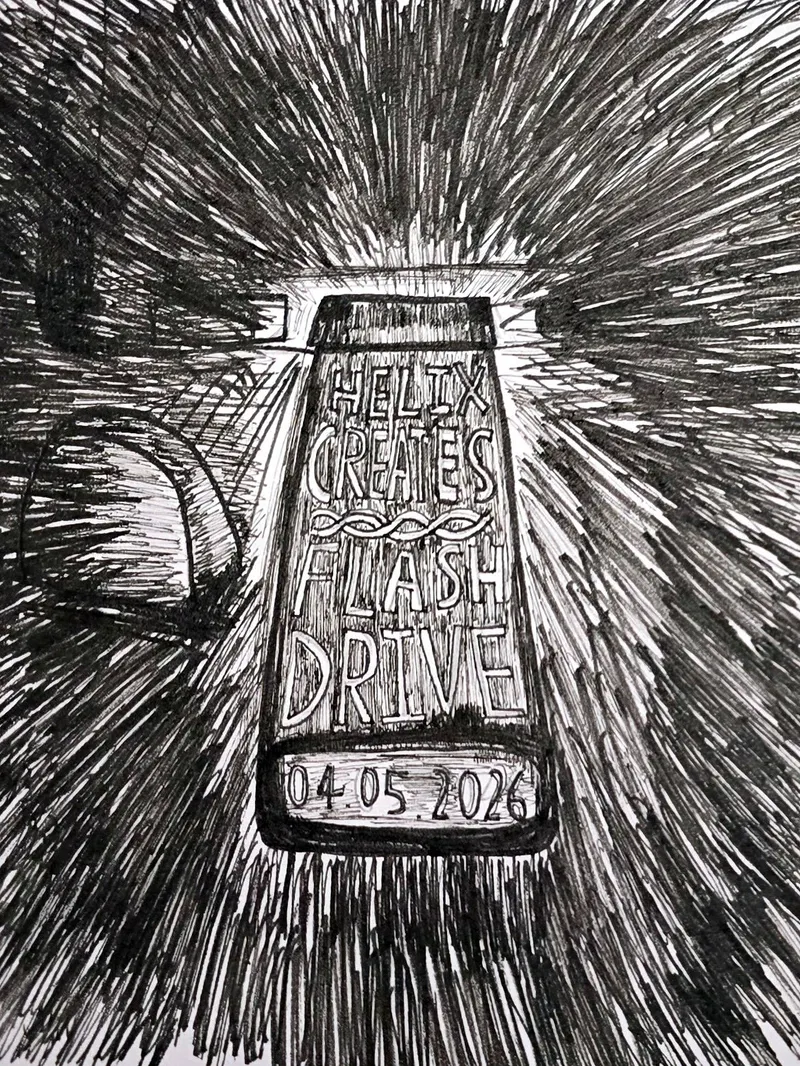 HELIX
CREATES
FLASH
DRIVE
04.05.2026